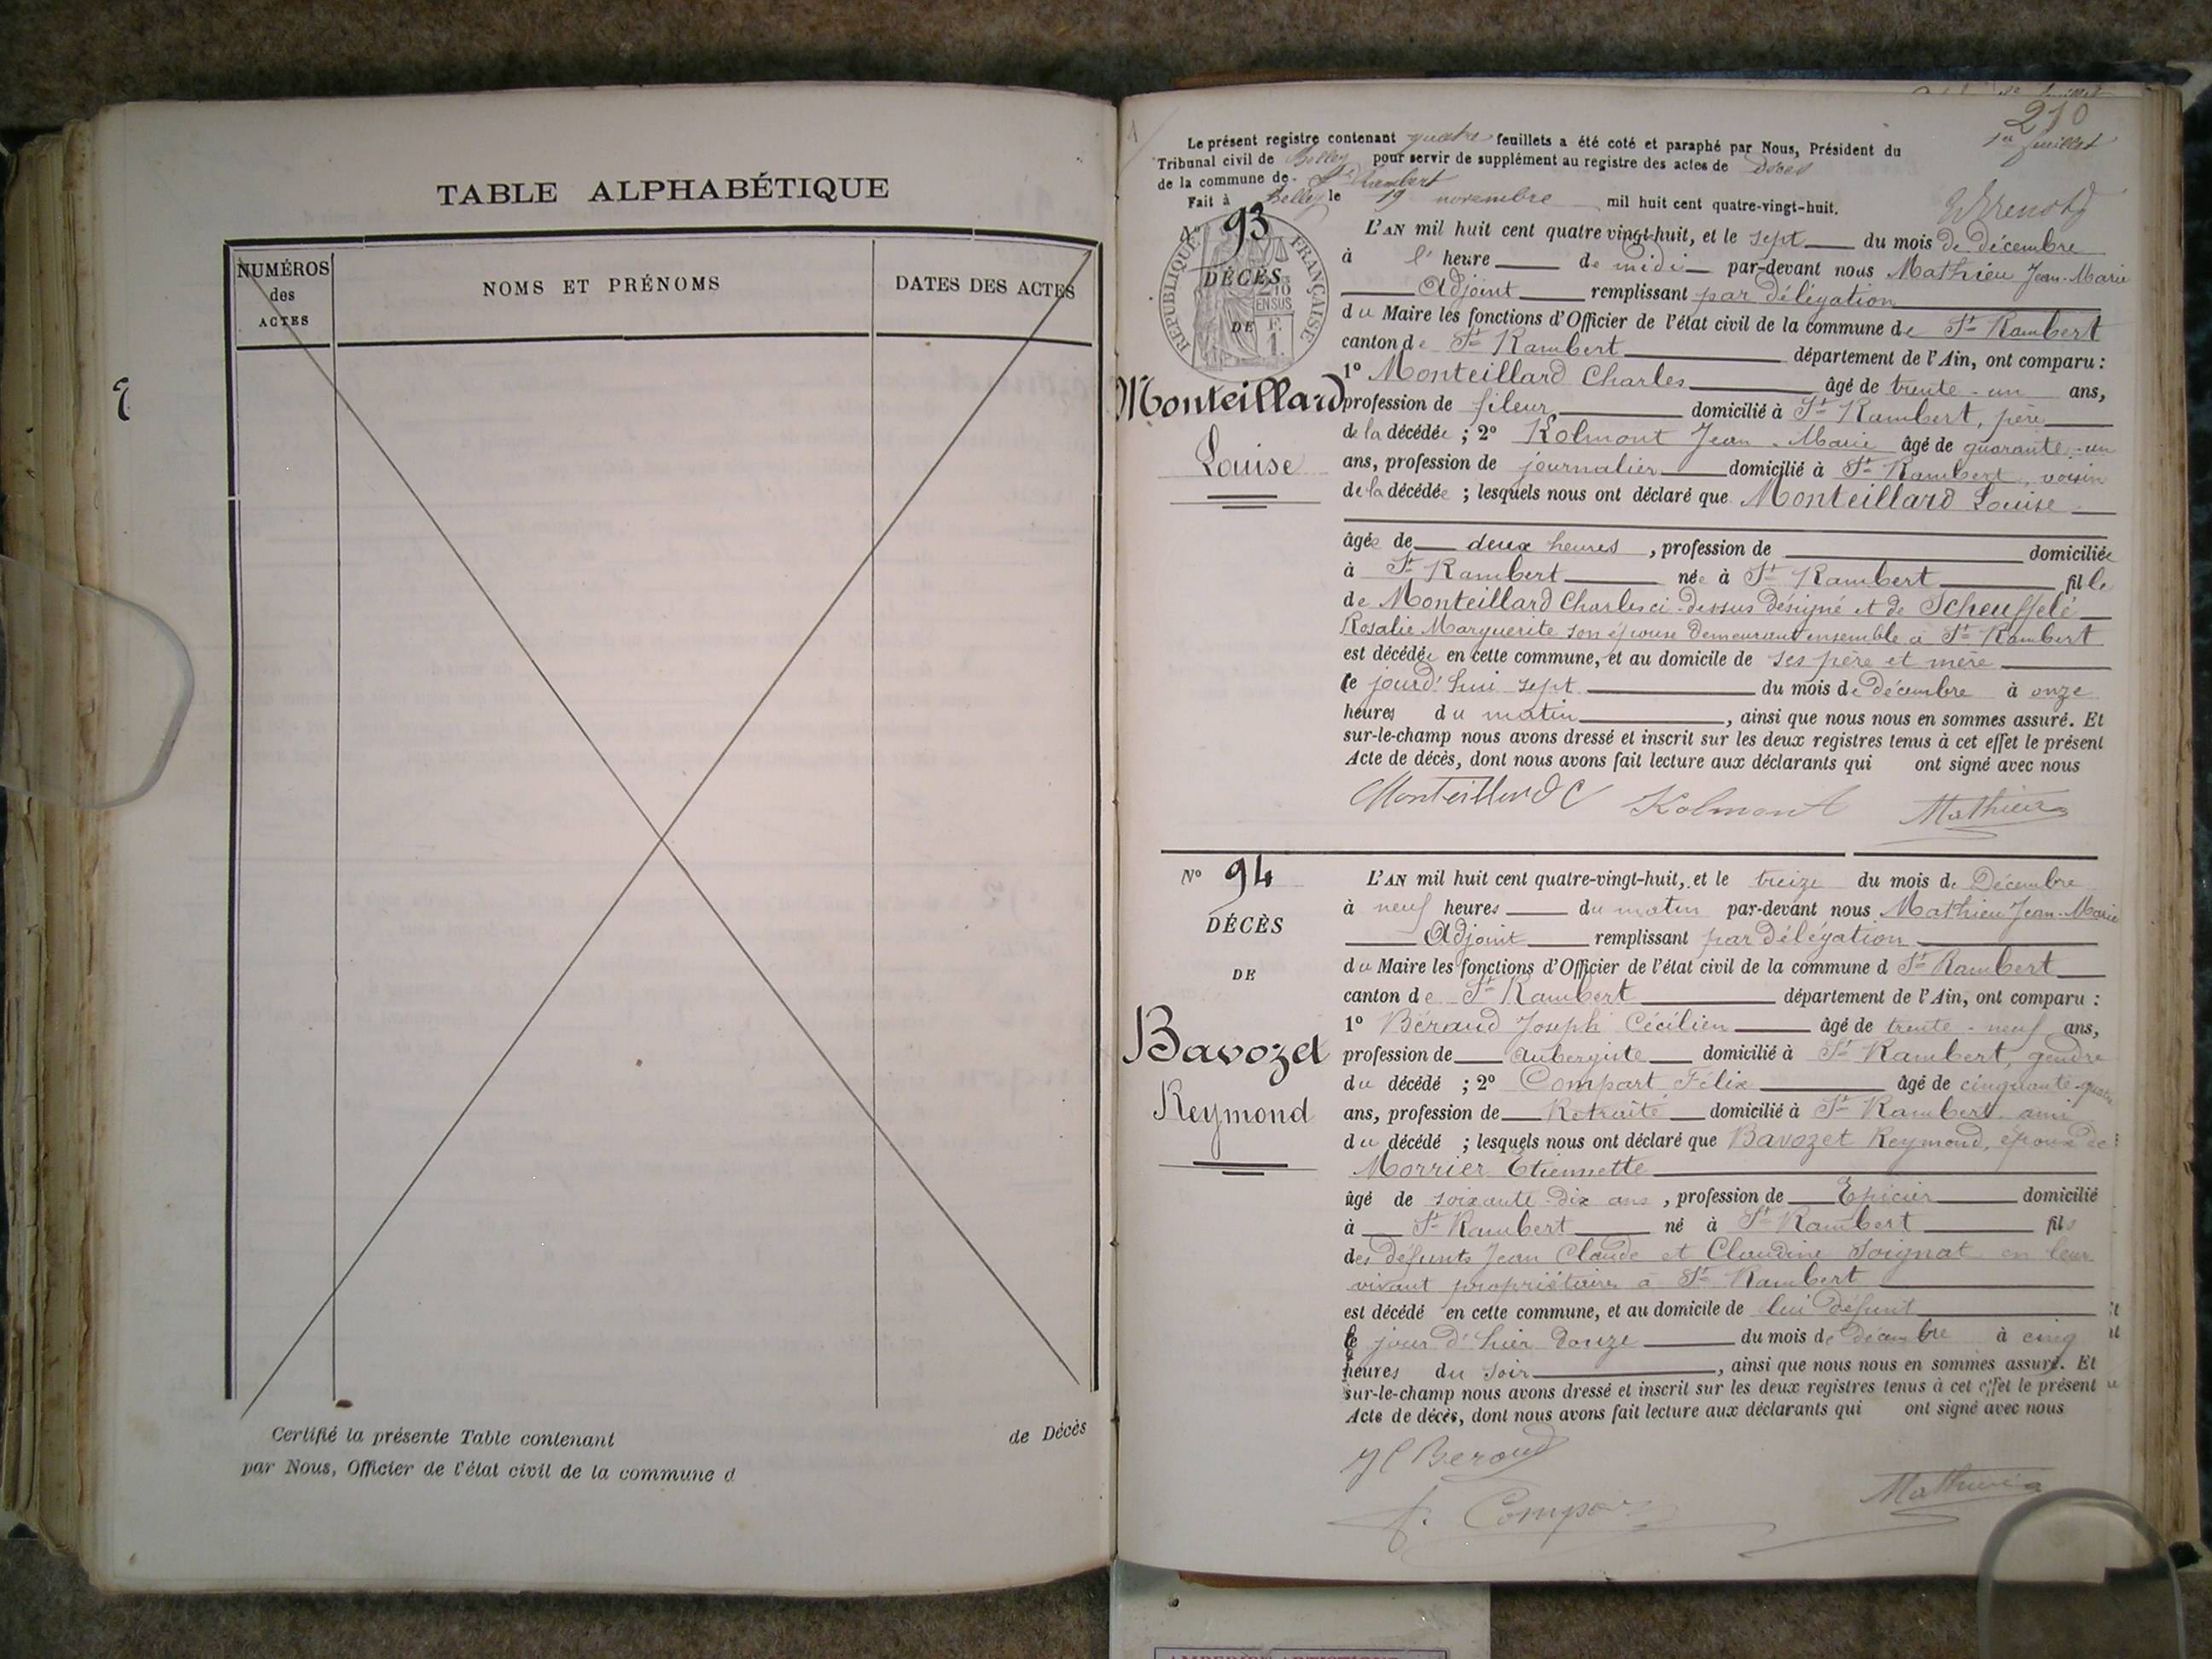 TABLE ALPHABÉTIQUE
NUMÉROS
des
ACTES
NOMS ET PRÉNOMS
DATES DES ACTES
Certifié la présente Table contenant de Décès
par Nous, Officier de l'état civil de la commune d
210
1er feuillet
Le présent registre contenant quatre feuillets a été coté et paraphé par Nous, Président du
Tribunal civil de Belley pour servir de supplément au registre des actes de Décès
de la commune de St Rambert
Fait à Belley le 19 novembre mil huit cent quatre-vingt-huit.
No 93
RÉPUBLIQUE FRANÇAISE
DÉCÈS
DE
Monteillard
Louise
L'AN mil huit cent quatre vingt-huit, et le sept du mois de décembre
à l' heure de midi par-devant nous Mathieu Jean-Marie
Adjoint remplissant par délégation
du Maire les fonctions d'Officier de l'état civil de la commune de St Rambert
canton de St Rambert département de l'Ain, ont comparu :
1º Monteillard Charles âgé de trente-un ans,
profession de fileur domicilié à St Rambert, père
de la décédée ; 2º Kolmont Jean-Marie âgé de quarante-un
ans, profession de journalier domicilié à St Rambert, voisin
de la décédée ; lesquels nous ont déclaré que Monteillard Louise
âgée de deux heures, profession de domiciliée
à St Rambert née à St Rambert fille
de Monteillard Charles ci-dessus désigné et de Scheuffelé
Rosalie Marguerite son épouse demeurant ensemble à St Rambert
est décédée en cette commune, et au domicile de ses père et mère
le jourd'hui sept du mois de décembre à onze
heures du matin, ainsi que nous nous en sommes assuré. Et
sur-le-champ nous avons dressé et inscrit sur les deux registres tenus à cet effet le présent
Acte de décès, dont nous avons fait lecture aux déclarants qui ont signé avec nous
Monteillard C Kolmont Mathieu
No 94
DÉCÈS
DE
Bavozet
Reymond
L'AN mil huit cent quatre-vingt-huit, et le treize du mois de Décembre
à neuf heures du matin par-devant nous Mathieu Jean-Marie
Adjoint remplissant par délégation
du Maire les fonctions d'Officier de l'état civil de la commune d St Rambert
canton de St Rambert département de l'Ain, ont comparu :
1º Béraud Joseph Cécilien âgé de trente-neuf ans,
profession de aubergiste domicilié à St Rambert, gendre
du décédé ; 2º Compart Félix âgé de cinquante-quatre
ans, profession de Retraité domicilié à St Rambert ami
du décédé ; lesquels nous ont déclaré que Bavozet Reymond, époux de
Morrier Etiennette
âgé de soixante-dix ans, profession de Epicier domicilié
à St Rambert né à St Rambert fils
des défunts Jean Claude et Claudine Soignat en leur
vivant propriétaires à St Rambert
est décédé en cette commune, et au domicile de lui défunt
le jour d'hier douze du mois de décembre à cinq
heures du soir, ainsi que nous nous en sommes assuré. Et
sur-le-champ nous avons dressé et inscrit sur les deux registres tenus à cet effet le présent
Acte de décès, dont nous avons fait lecture aux déclarants qui ont signé avec nous
JC Beraud
F. Compar Mathieu